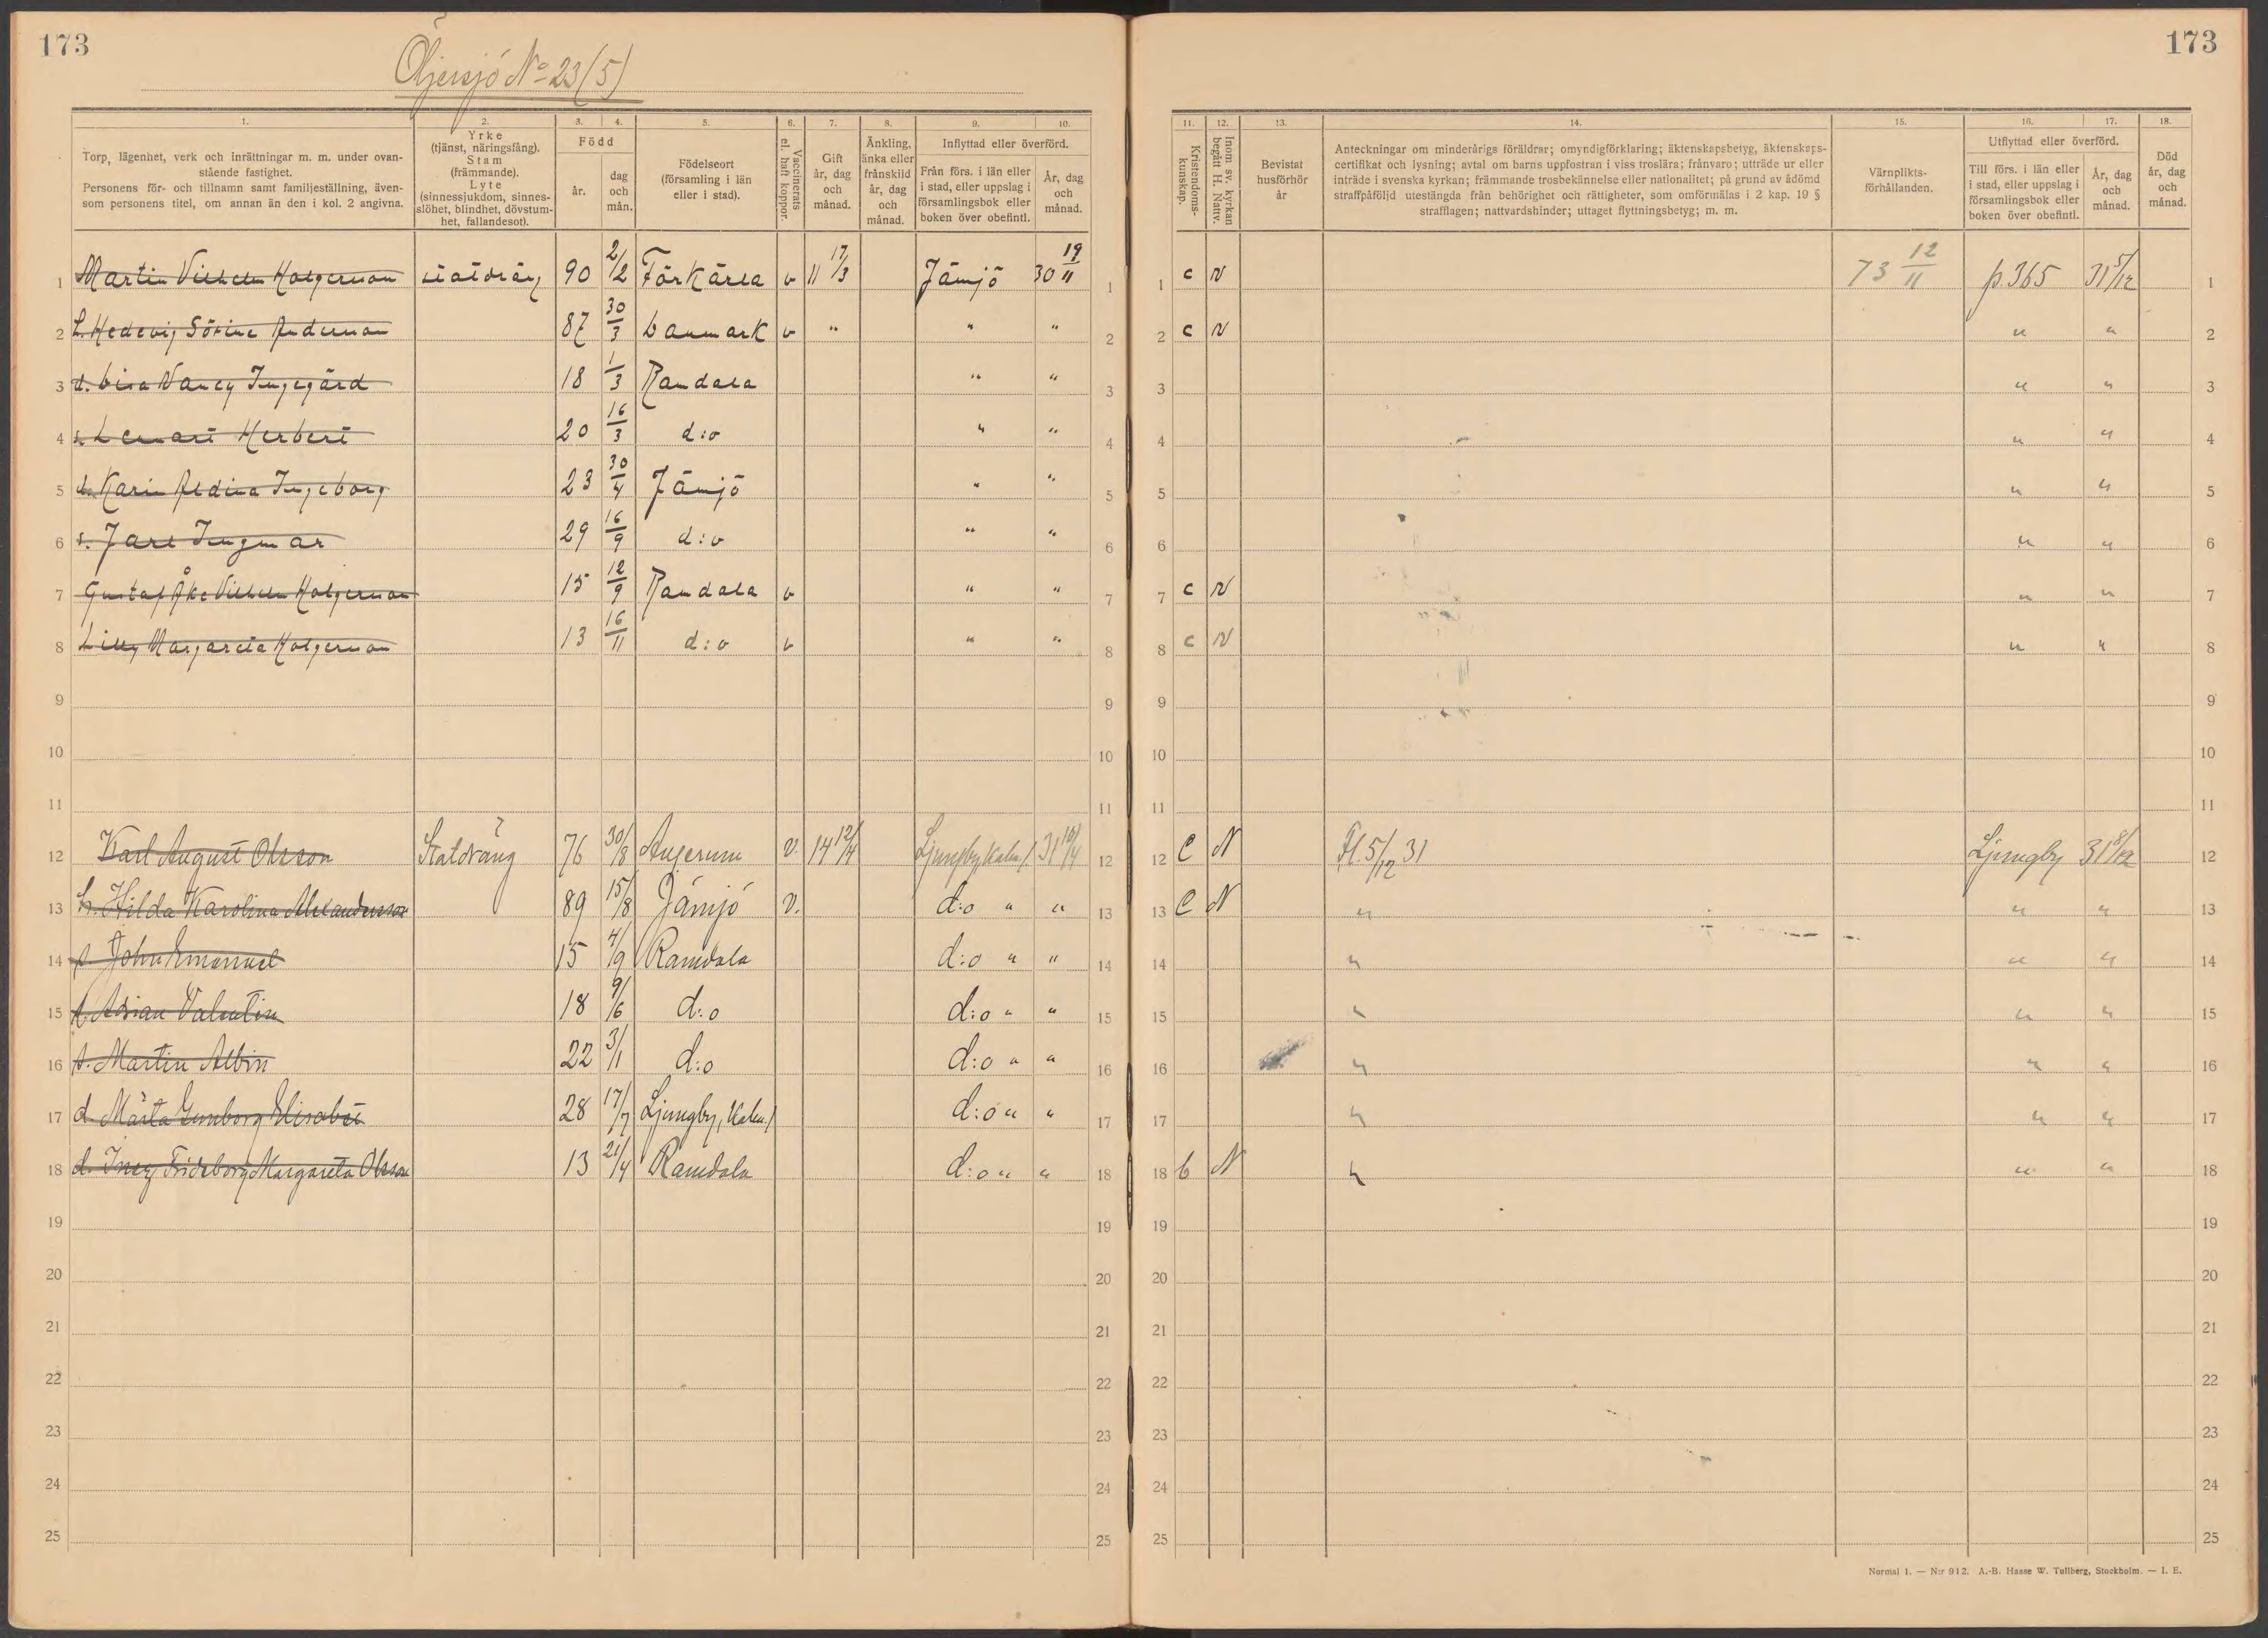 173
Öljersjö No 23 (5)
173
1.
2.
3.
4.
5.
6.
7.
8.
9.
10.
11.
12.
13.
14.
15.
16.
17.
18.
Torp, lägenhet, verk och inrättningar m. m. under ovan-
stående fastighet.
Personens för- och tillnamn samt familjeställning, även-
som personens titel, om annan än den i kol. 2 angivna.
Yrke
(tjänst, näringsfång).
Stam
(främmande).
Lyte
(sinnessjukdom, sinnes-
slöhet, blindhet, dövstum-
het, fallandesot).
Född
år.
dag
och
mån.
Födelseort
(församling i län
eller i stad).
Vaccinerats
el. haft koppor.
Gift
år, dag
och
månad.
Änkling,
änka eller
frånskild
år, dag
och
månad.
Inflyttad eller överförd.
Från förs. i län eller
i stad, eller uppslag i
församlingsbok eller
boken över obefintl.
År, dag
och
månad.
Kristendoms-
kunskap.
Inom sv. kyrkan
begått H. Nattv.
Bevistat
husförhör
år
Anteckningar om minderårigs föräldrar; omyndigförklaring; äktenskapsbetyg, äktenskaps-
certifikat och lysning; avtal om barns uppfostran i viss troslära; frånvaro; utträde ur eller
inträde i svenska kyrkan; främmande trosbekännelse eller nationalitet; på grund av ådömd
straffpåföljd utestängda från behörighet och rättigheter, som omförmälas i 2 kap. 19 §
strafflagen; nattvardshinder; uttaget flyttningsbetyg; m. m.
Värnplikts-
förhållanden.
Utflyttad eller överförd.
Till förs. i län eller
i stad, eller uppslag i
församlingsbok eller
boken över obefintl.
År, dag
och
månad.
Död
år, dag
och
månad.
1 Martin Vilhelm Holgersson statdräng 90 2/2 Förkärla v 11 17/3 Jämjö 30 19/11 1 1 c N 73 12/11 p.365 31 5/12 1
2 h. Hedevig Sörine Andersson 87 30/3 Danmark v " " " 2 2 c N " " 2
3 d. Lisa Nancy Ingegärd 18 1/3 Ramdala " " 3 3 " " 3
4 s. Lennart Herbert 20 16/3 d:o " " 4 4 " " 4
5 d. Karin Aldina Ingeborg 23 30/4 Jämjö " " 5 5 " " 5
6 s. Jarl Ingmar 29 16/9 d:o " " 6 6 " " 6
7 Gustaf Åke Vilhelm Holgersson 15 12/9 Ramdala v " " 7 7 c N " " 7
8 Lilly Margareta Holgersson 13 16/11 d:o v " " 8 8 c N " " 8
9 9 9 9
10 10 10 10
11 11 11 11
12 Karl August Olsson Statdräng 76 30/8 Augerum v. 14 12/4 Ljungby, Kalm. l. 31 10/4 12 12 C N Fl. 5/12 31 Ljungby 31 8/12 12
13 h. Hilda Karolina Alexandersson 89 15/8 Jämjö v. d:o " " 13 13 C N " " " 13
14 s. John Emanuel 15 4/9 Ramdala d:o " " 14 14 " " " 14
15 s. Adrian Valentin 18 9/6 d:o d:o " " 15 15 " " " 15
16 s. Martin Albin 22 3/1 d:o d:o " " 16 16 " " " 16
17 d. Märta Gunborg Elisabet 28 17/7 Ljungby, Kalm. l. d:o " " 17 17 " " " 17
18 d. Inez Frideborg Margareta Olsson 13 21/4 Ramdala d:o " " 18 18 C N " " " 18
19 19 19 19
20 20 20 20
21 21 21 21
22 22 22 22
23 23 23 23
24 24 24 24
25 25 25 25
Normal 1. — N:r 912. A.-B. Hasse W. Tullberg, Stockholm. — I. E.